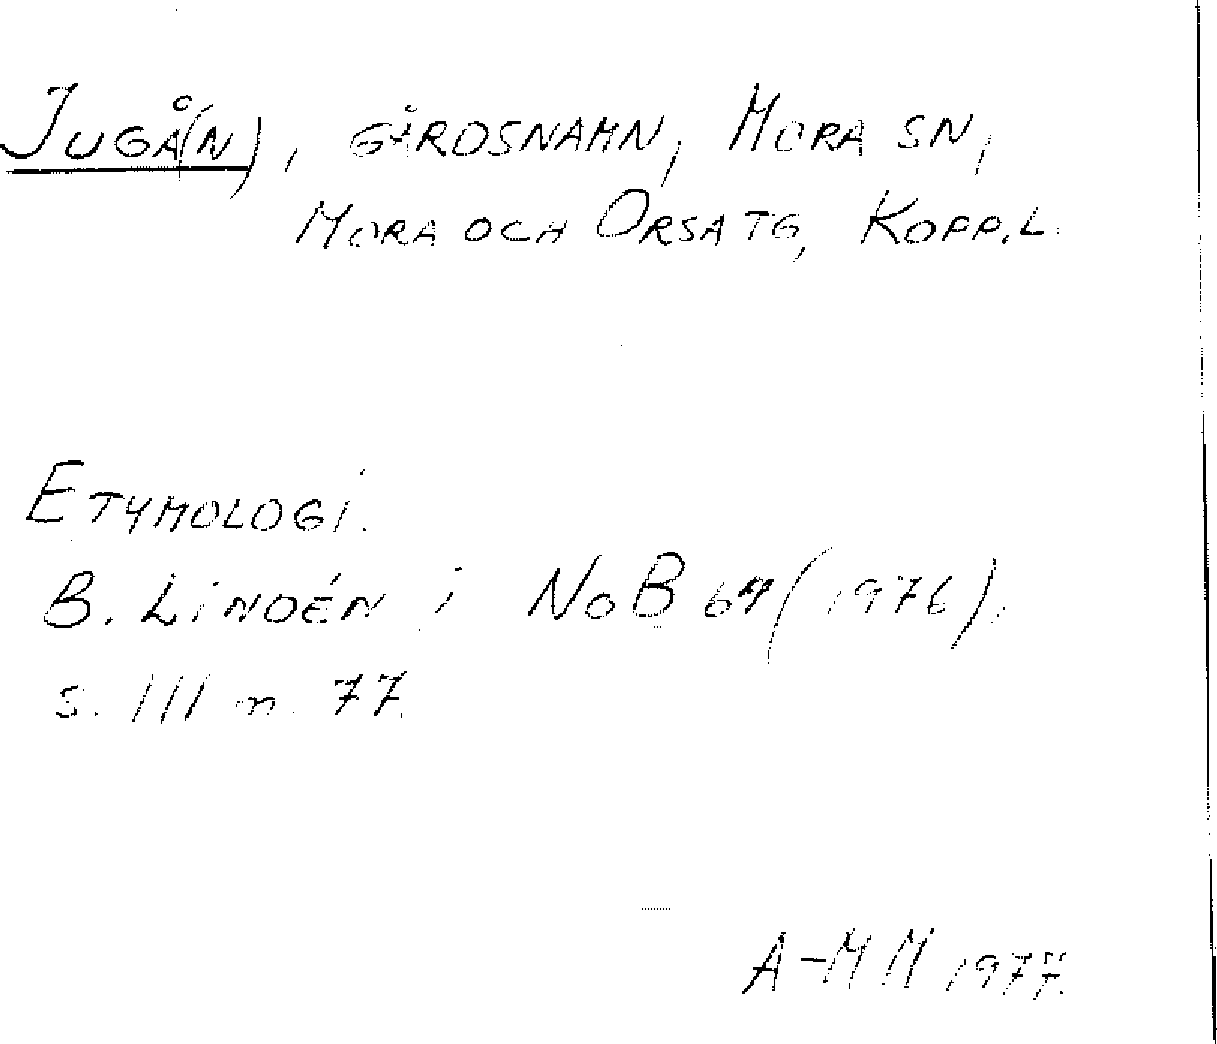 JUGÅ(N), GÅRDSNAMN, MORA SN,
MORA OCH ORSA TG, KOPP.L.
ETYMOLOGI.
B. LINDÉN i NoB 64 (1976),
s. 111 n. 77.
A-MM 1977.